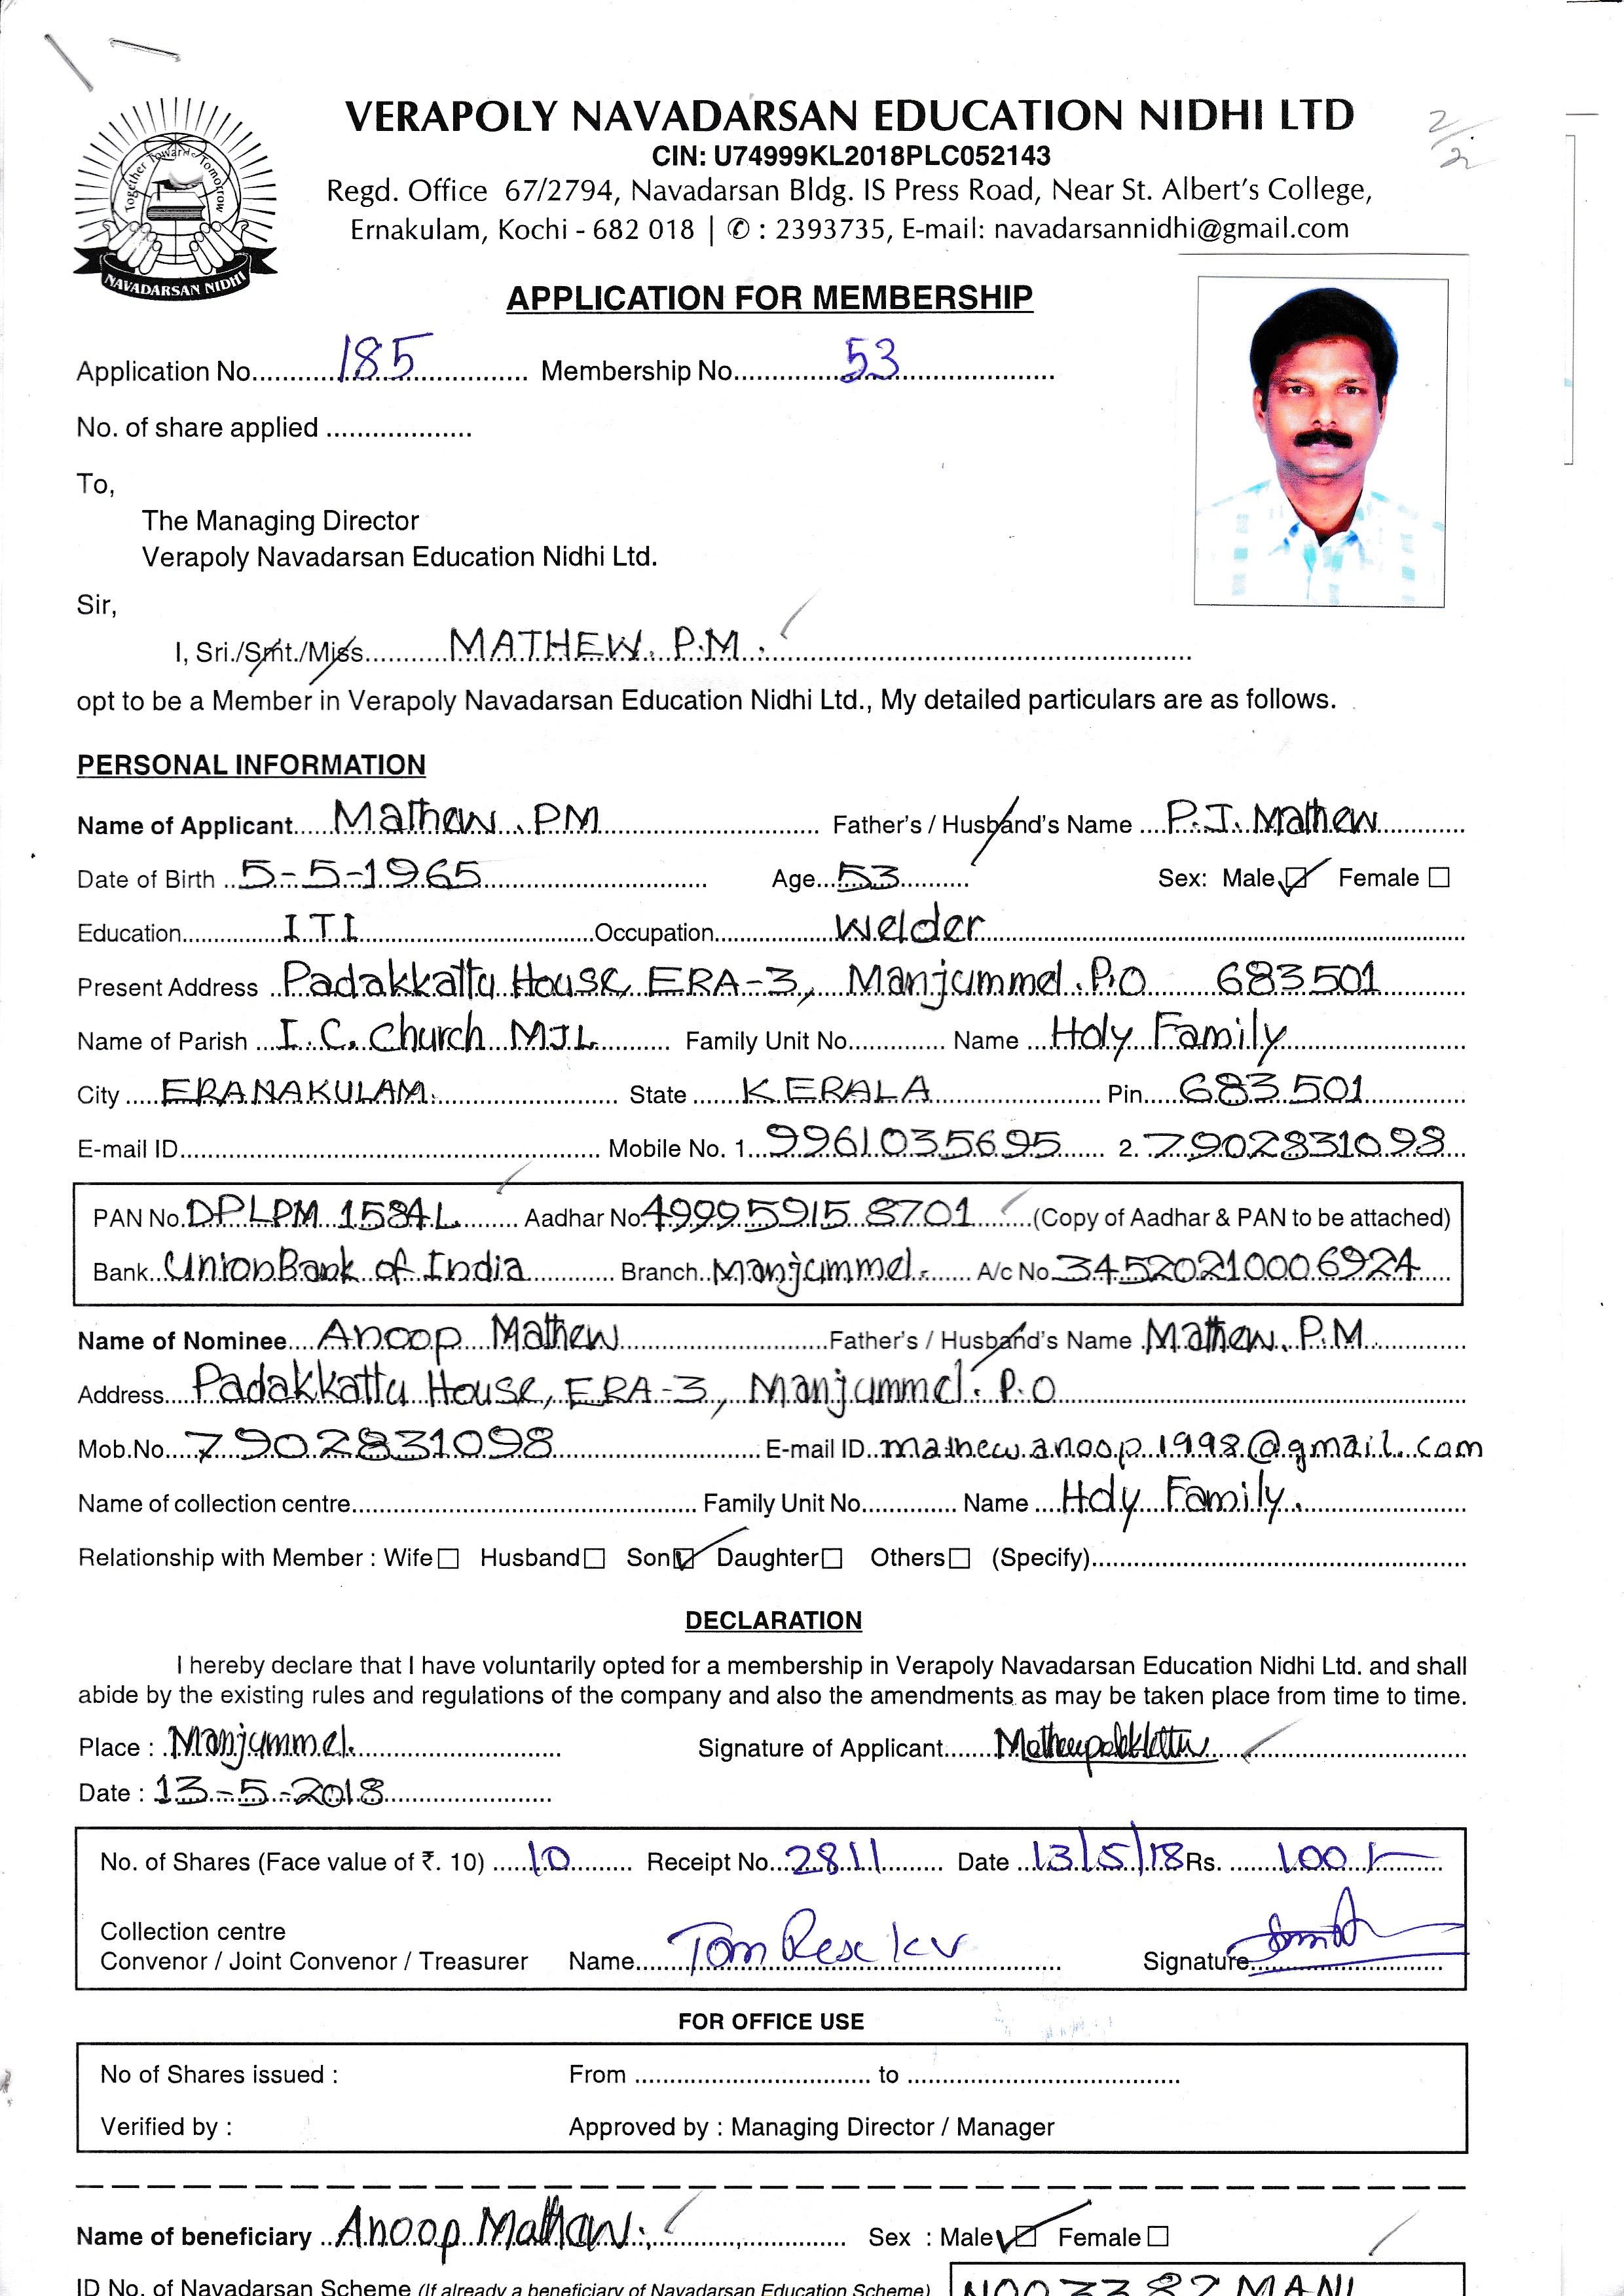 VERAPOLY NAVADARSAN EDUCATION NIDHI LTD
CIN: U74999KL2018PLC052143
Regd. Office 67/2794, Navadarsan Bldg. IS Press Road, Near St. Albert's College,
Ernakulam, Kochi - 682 018 | ✆ : 2393735, E-mail: navadarsannidhi@gmail.com
Together Towards Tomorrow
NAVADARSAN NIDHI
APPLICATION FOR MEMBERSHIP
Application No. 185 Membership No. 53
No. of share applied
To,
The Managing Director
Verapoly Navadarsan Education Nidhi Ltd.
Sir,
I, Sri./Smt./Miss MATHEW. P.M.
opt to be a Member in Verapoly Navadarsan Education Nidhi Ltd., My detailed particulars are as follows.
PERSONAL INFORMATION
Name of Applicant Mathew. PM Father's / Husband's Name P.J. Mathew
Date of Birth 5-5-1965 Age 53 Sex: Male ☑ Female ☐
Education I.T.I Occupation Welder
Present Address Padakkattu House, ERA-3, Manjummel. P.O 683501
Name of Parish I.C. Church MJL Family Unit No. Name Holy Family
City ERANAKULAM. State KERALA Pin 683501
E-mail ID Mobile No. 1. 9961035695 2. 7902831098
PAN No. DPLPM 1584L Aadhar No. 499959158701 (Copy of Aadhar & PAN to be attached)
Bank Union Bank of India Branch Manjummel. A/c No. 345202100006924
Name of Nominee Anoop Mathew Father's / Husband's Name Mathew. P.M
Address Padakkattu House, ERA-3, Manjummel. P.O
Mob.No. 7902831098 E-mail ID mathew.anoop.1998@gmail.com
Name of collection centre Family Unit No. Name Holy Family.
Relationship with Member : Wife ☐ Husband ☐ Son ☑ Daughter ☐ Others ☐ (Specify)
DECLARATION
I hereby declare that I have voluntarily opted for a membership in Verapoly Navadarsan Education Nidhi Ltd. and shall
abide by the existing rules and regulations of the company and also the amendments as may be taken place from time to time.
Place : Manjummel. Signature of Applicant
Date : 13-5-2018
No. of Shares (Face value of ₹. 10) 10 Receipt No. 2811 Date 13/5/18 Rs. 100/-
Collection centre
Convenor / Joint Convenor / Treasurer Name Tom Rex KV Signature
FOR OFFICE USE
No of Shares issued : From to
Verified by : Approved by : Managing Director / Manager
Name of beneficiary Anoop Mathew Sex : Male ☑ Female ☐
ID No. of Navadarsan Scheme (If already a beneficiary of Navadarsan Education Scheme)